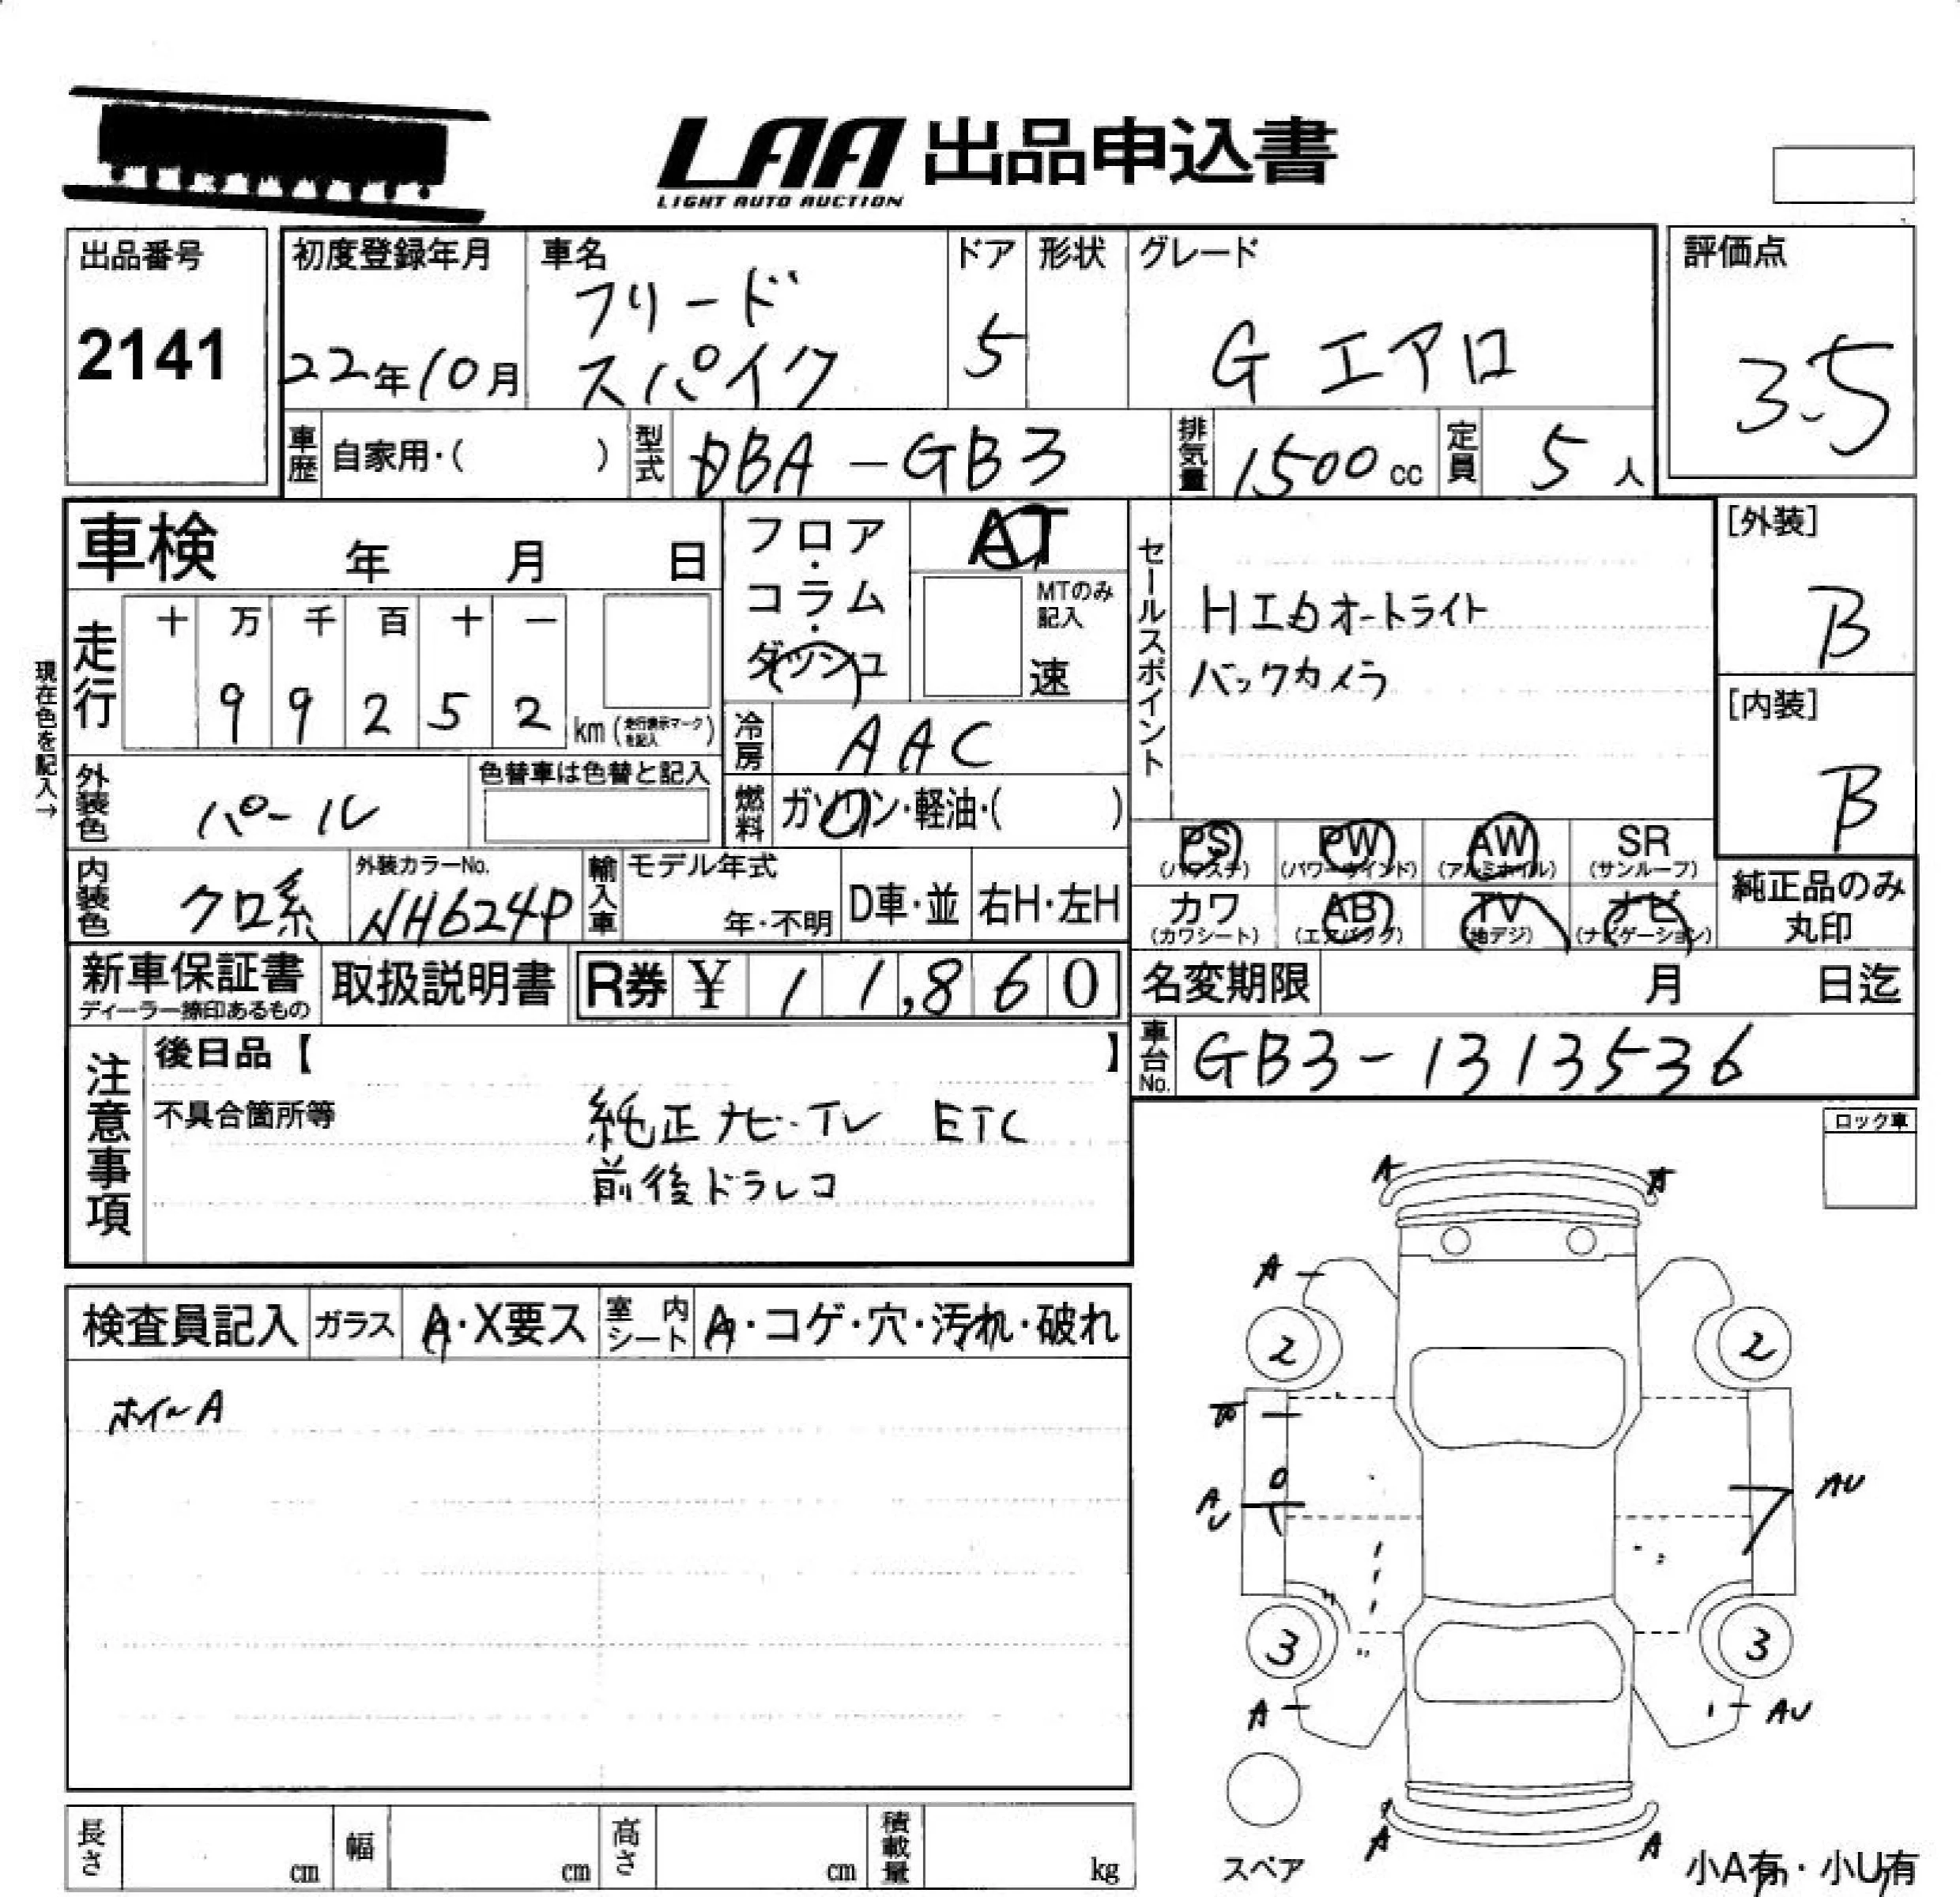 LAA 出品申込書
LIGHT AUTO AUCTION
出品番号
2141
初度登録年月
22年10月
車名
フリード
スパイク
ドア
5
形状
グレード
G エアロ
評価点
3.5
車歴 自家用・( )
型式 DBA-GB3
排気量 1500 cc
定員 5 人
車検 年 月 日
フロア・コラム・ダッシュ
AT
MTのみ記入
速
セールスポイント
HIDオートライト
バックカメラ
[外装]
B
[内装]
B
現在色を記入→
走行
十 万 千 百 十 一
9 9 2 5 2 km (走行表示マークを記入)
冷房 AAC
外装色 パール
色替車は色替と記入
燃料 ガソリン・軽油・( )
PS (パワステ)
PW (パワーウインド)
AW (アルミホイル)
SR (サンルーフ)
カワ (カワシート)
AB (エアバッグ)
TV (地デジ)
ナビ (ナビゲーション)
純正品のみ丸印
内装色 クロ系
外装カラーNo.
NH624P
輸入車
モデル年式
年・不明
D車・並
右H・左H
新車保証書
ディーラー捺印あるもの
取扱説明書
R券 ¥ 11,860
名変期限 月 日迄
車台No. GB3-1313536
注意事項
後日品【 】
不具合箇所等
純正ナビ・TV ETC
前後ドラレコ
ロック車
検査員記入
ガラス A・X要ス
室内シート A・コゲ・穴・汚れ・破れ
ホイルA
A
A
2
2
AU
AU
3
3
A
AU
スペア
A
A
小A有・小U有
長さ cm
幅 cm
高さ cm
積載量 kg